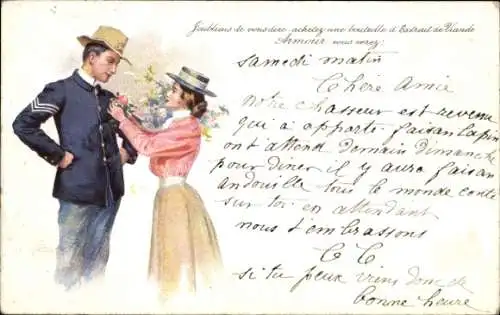 J'oubliais de vous dire, achetez une bouteille d'Extrait de Viande
Armour, vous verez.
samedi matin
Chère Amie
notre chasseur est revenu
qui à apporté faisan lapin
ont attend domain Dimanche
pour diner il y aura faisan
andouille tous le monde conte
sur toi en attendant
nous t'embrassons
C C
si tu peux viens donc de
bonne heure